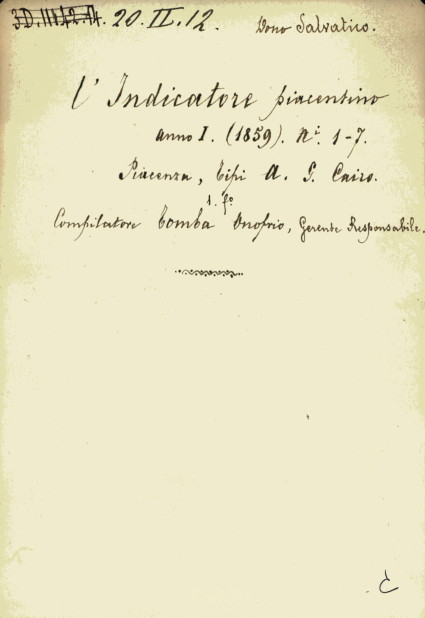 3.D.III.42.14. 20.II.12. Dono Salvatico.
L' Indicatore piacentino
anno I. (1859). Nⁱ. 1-7.
Piacenza, tipi A. G. Cairo.
1. fº
Compilatore Tomba Onofrio, Gerente Responsabile.
C